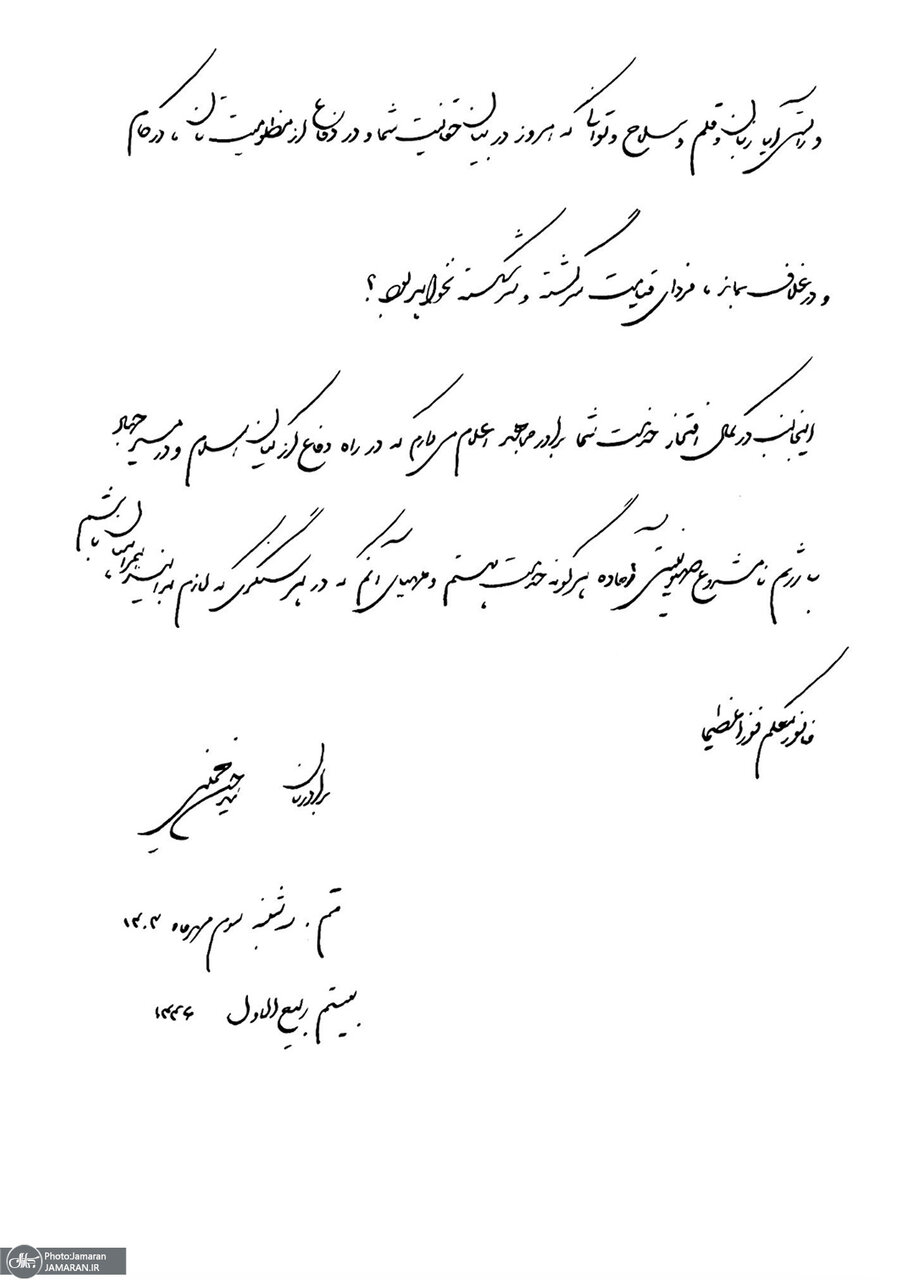 و راستی آیا زبان و قلم و سلاح و توانی که امروز در بیان حقانیت شما و در دفاع از مظلومیت تان، در کام
و در غلاف بماند، فردای قیامت سرگشته و سرشکسته نخواهد بود؟
اینجانب در کمال افتخار خدمت شما برادر مجاهد اعلام می دارم که در راه دفاع از کیان اسلام و در مسیر جهاد
با رژیم نامشروع صهیونیستی آماده هرگونه خدمت هستم و مهیای آنم که در هر سنگری که لازم بدانید همراهتان باشم
فافوز معکم فوزا عظیما
برادرتان سید حسن خمینی
قم. سه شنبه سوم مهرماه ۱۴۰۳
بیستم ربیع الاول ۱۴۴۶
Photo:Jamaran
JAMARAN.IR